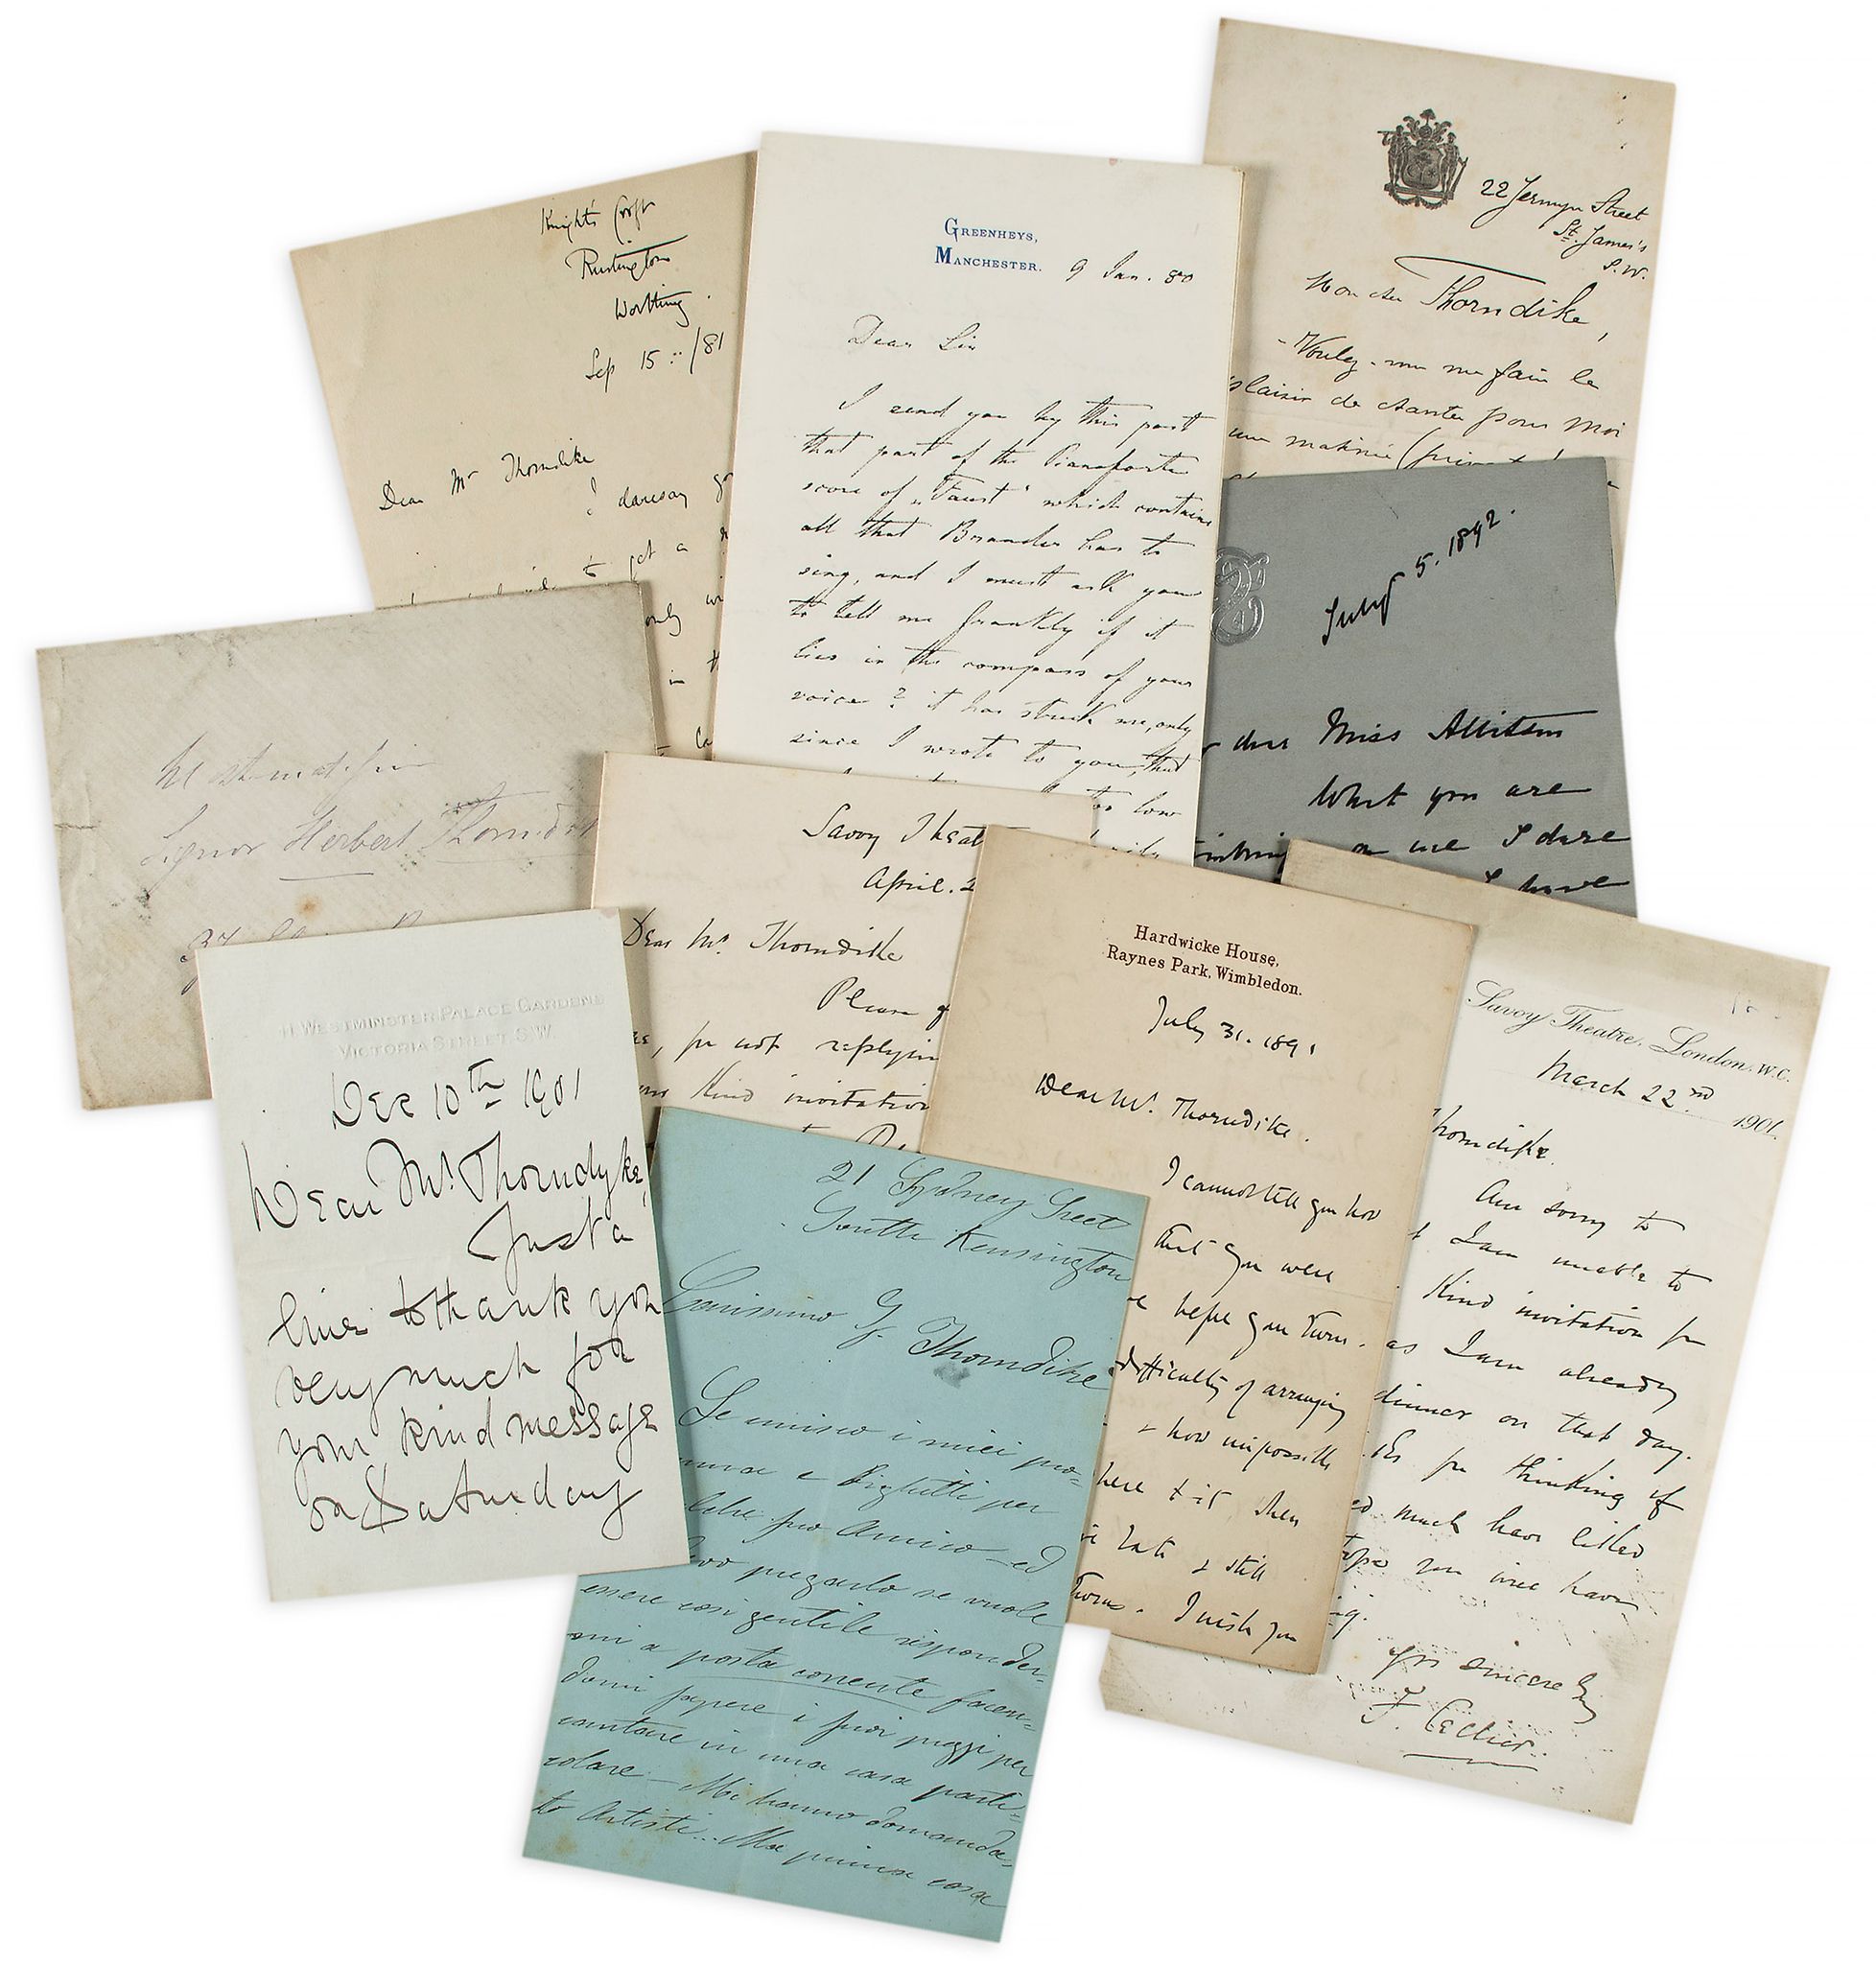 Knight's Croft
Rustington
Worthing.
Sep 15 : /81
Dear Mr Thorndike
I daresay
to get a
only
in
GREENHEYS,
MANCHESTER.
9 Jan. 80
Dear Sir
I send you by this post
that part of the Pianoforte
score of „Faust" which contains
all that Brander has to
sing, and I must ask you
to tell me frankly if it
lies in the compass of your
voice? it has struck me, only
since I wrote to you, that
too low
22 Jermyn Street
St. James's
S.W.
Mon cher Thorndike,
- Voulez-vous me faire le
plaisir de chanter pour moi
une matinée (
July 5. 1892.
dear Miss Allitsen
What you are
thinking of me I dare
I have
Signor Herbert Thorndike
37
Savoy Theat
April. 2
Dear Mr. Thorndike
Please
for not replying
kind invitation
Hardwicke House,
Raynes Park, Wimbledon.
July 31. 1891
Dear Mr. Thorndike.
I cannot tell you how
that you were
before your turn.
difficulty of arranging
& how impossible
here & it then
late & still
Turns. I wish you
Savoy Theatre, London, W.C.
March 22nd 1901.
Thorndike.
Am sorry to
I am unable to
kind invitation for
as I am already
dinner on that day.
for thinking of
much have liked
hope you will have
Yrs sincerely
F. Cellier.
11 WESTMINSTER PALACE GARDENS
VICTORIA STREET S.W.
Dec 10th 1901
Dear Mr. Thorndyke,
Just a
line to thank you
very much for
your kind message
on Saturday
21 Sydney Street
South Kensington
Carissimo Sr. Thorndike
Le unisco i miei pro-
e Biglietti per
pro Amico ed
pregarlo se vuole
essere così gentile risponder-
mi a posta corrente facen-
domi sapere i suoi prezzi per
cantare in una casa parti-
colare - Mi hanno domanda-
to Artisti... Ma prima cosa